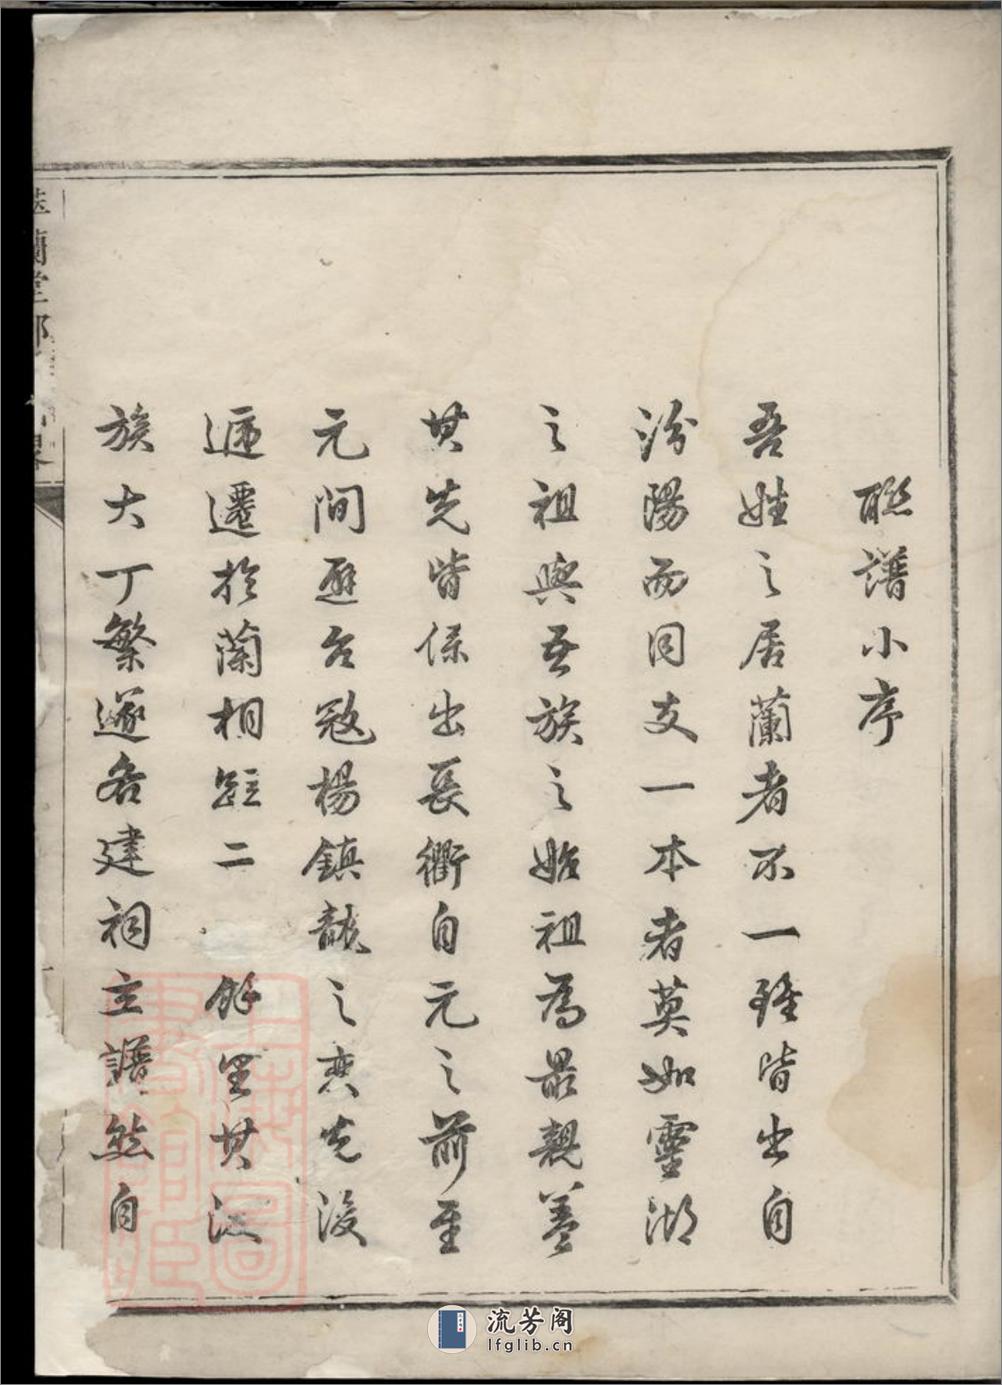 聮譜小序
吾姓之居蘭者不一雖皆出自
汾陽而同支一本者莫如靈湖
之祖與吾族之始祖為最親蓋
其先皆係出長衢自元之前至
元間避台寇楊鎮龍之變先後
遞遷於蘭相距二 餘里其
族大丁繁遂各建祠立譜然自
蘭堂
上海圖書館藏
流芳阁
lfglib.cn